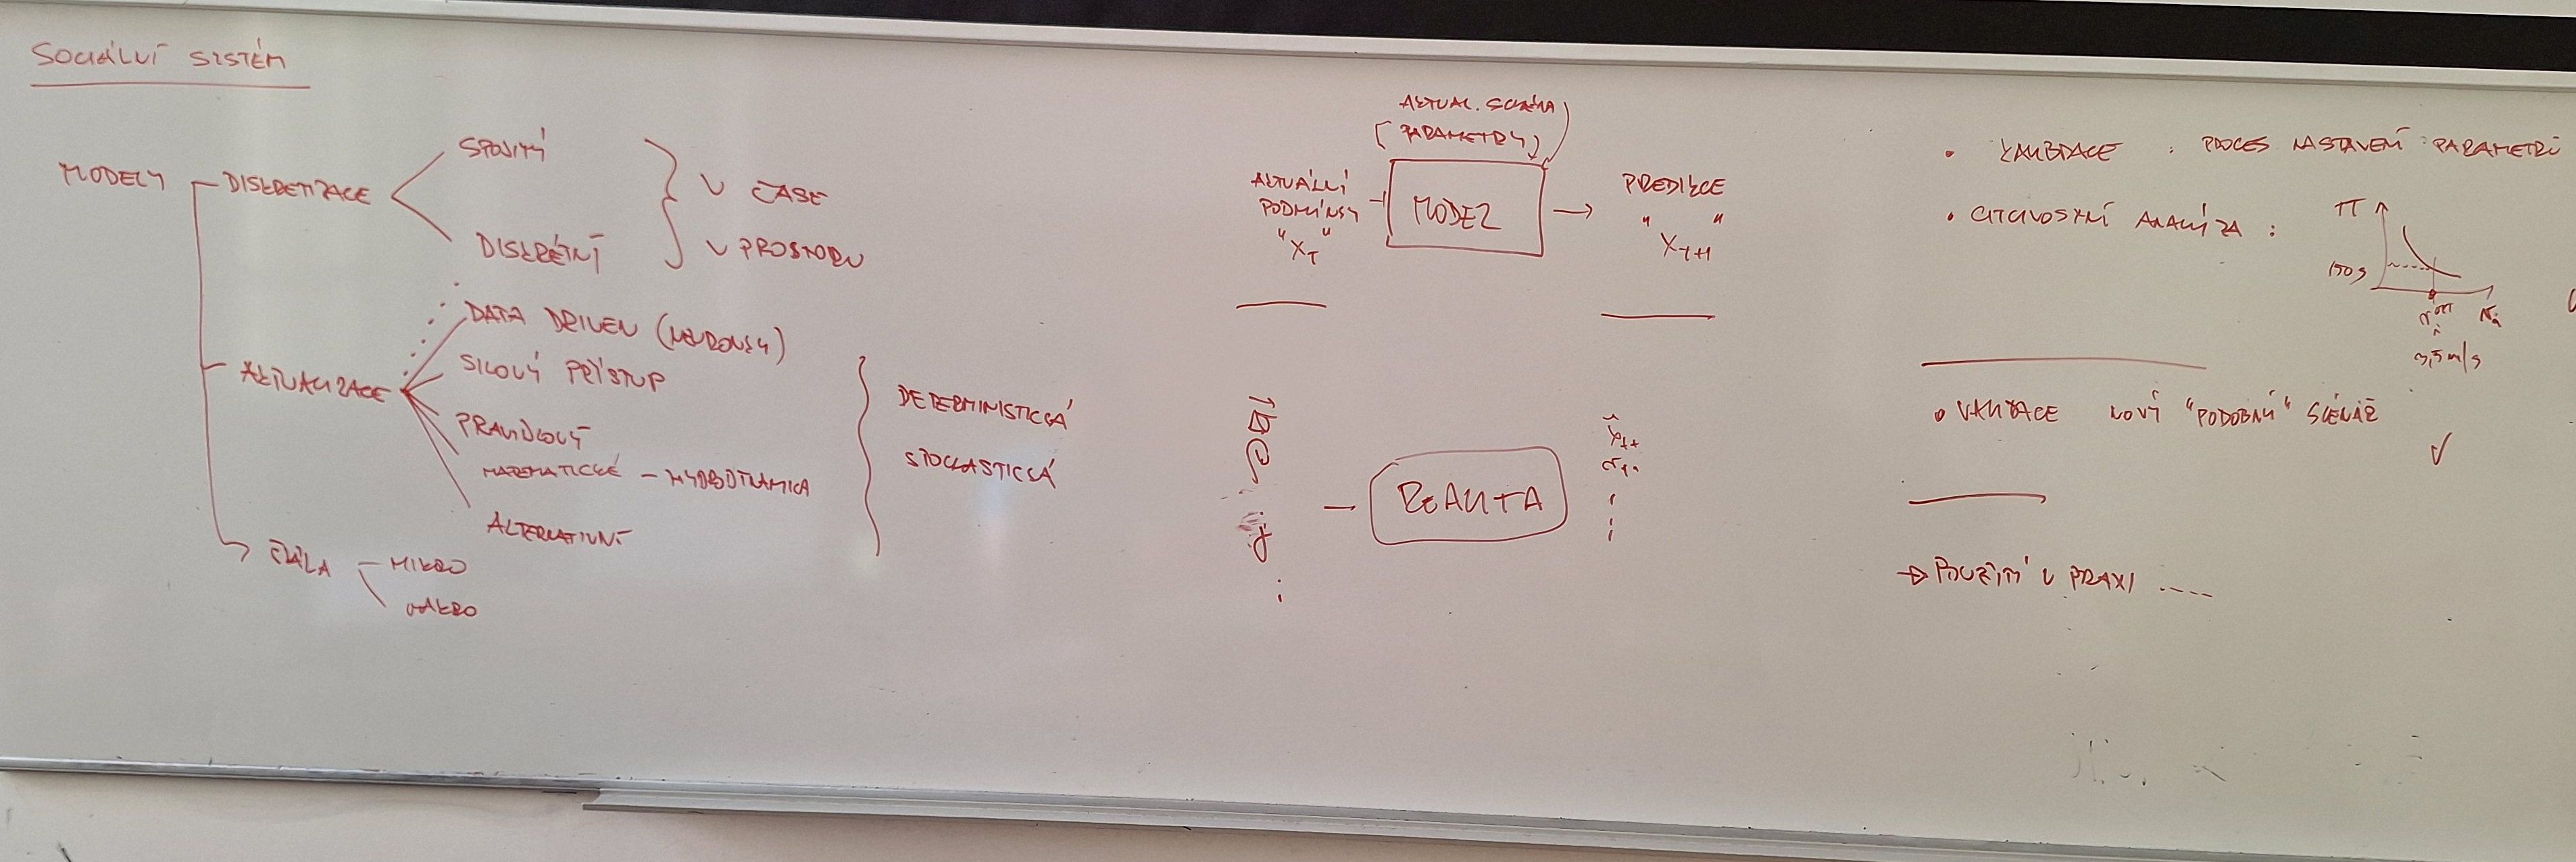 SOCIÁLNÍ SYSTÉM
MODELY
DISKRETIZACE
SPOJITÝ
DISKRÉTNÍ
V ČASE
V PROSTORU
AKTUALIZACE
DATA DRIVEN (NEURONKY)
SILOVÝ PŘÍSTUP
PRAVIDLOVÝ
MATEMATICKÉ – HYDRODYNAMIKA
ALTERNATIVNÍ
DETERMINISTICKÁ
STOCHASTICKÁ
ŠKÁLA
MIKRO
MAKRO
AKTUAL. SCHÉMA
(PARAMETRY)
AKTUÁLNÍ
PODMÍNKY
"X_T"
MODEL
PREDIKCE
"X_T+1"
REALITA
• KALIBRACE : PROCES NASTAVENÍ PARAMETRŮ
• CITLIVOSTNÍ ANALÝZA :
TT
150 s
OPT
3,5 m/s
• VALIDACE NOVÝ "PODOBNÝ" SCÉNÁŘ
✓
→ POUŽITÍ V PRAXI ....